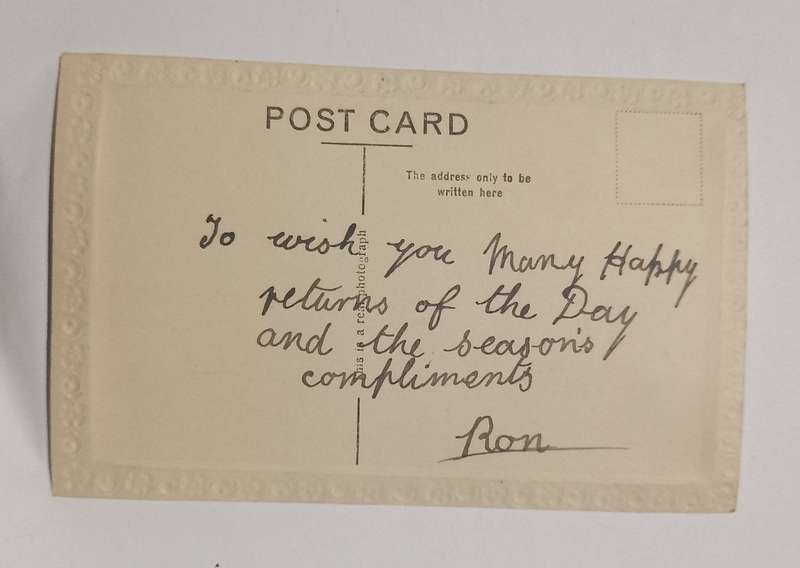 POST CARD
The address only to be
written here
This is a real photograph
To wish you Many Happy
returns of the Day
and the season's
compliments
Ron